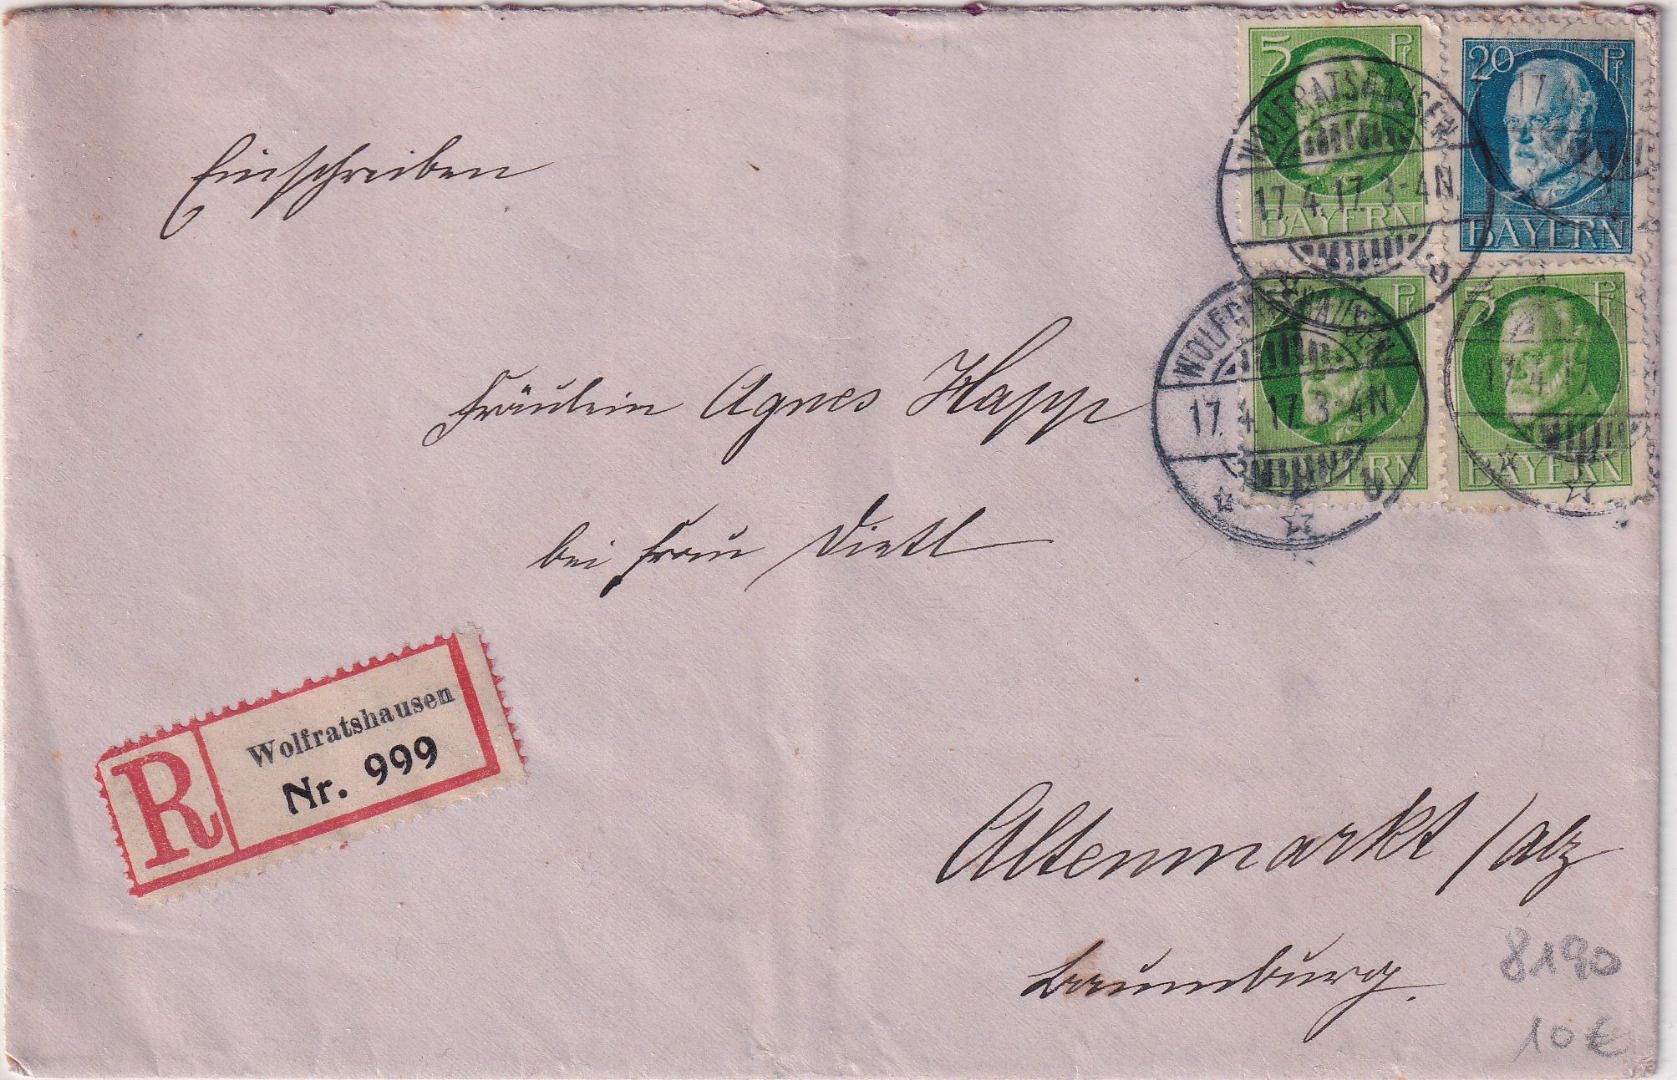 Einschreiben
5 Pf
BAYERN
20 Pf
BAYERN
WOLFRATSHAUSEN
17.4.17. 3-4N
Pf
WOLFRATSHAUSEN
17.4.17. 3-4N
5 Pf
BAYERN
17.4.17
Fräulein Agnes Happ
bei Frau Dietl
R
Wolfratshausen
Nr. 999
Altenmarkt /Alz
Baumburg.
8190
10€